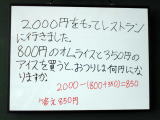 2000円をもってレストラン
に行きました。
800円のオムライスと350円の
アイスを買うと、おつりは何円にな
りますか。
2000-(800+350)=850
答え 850円